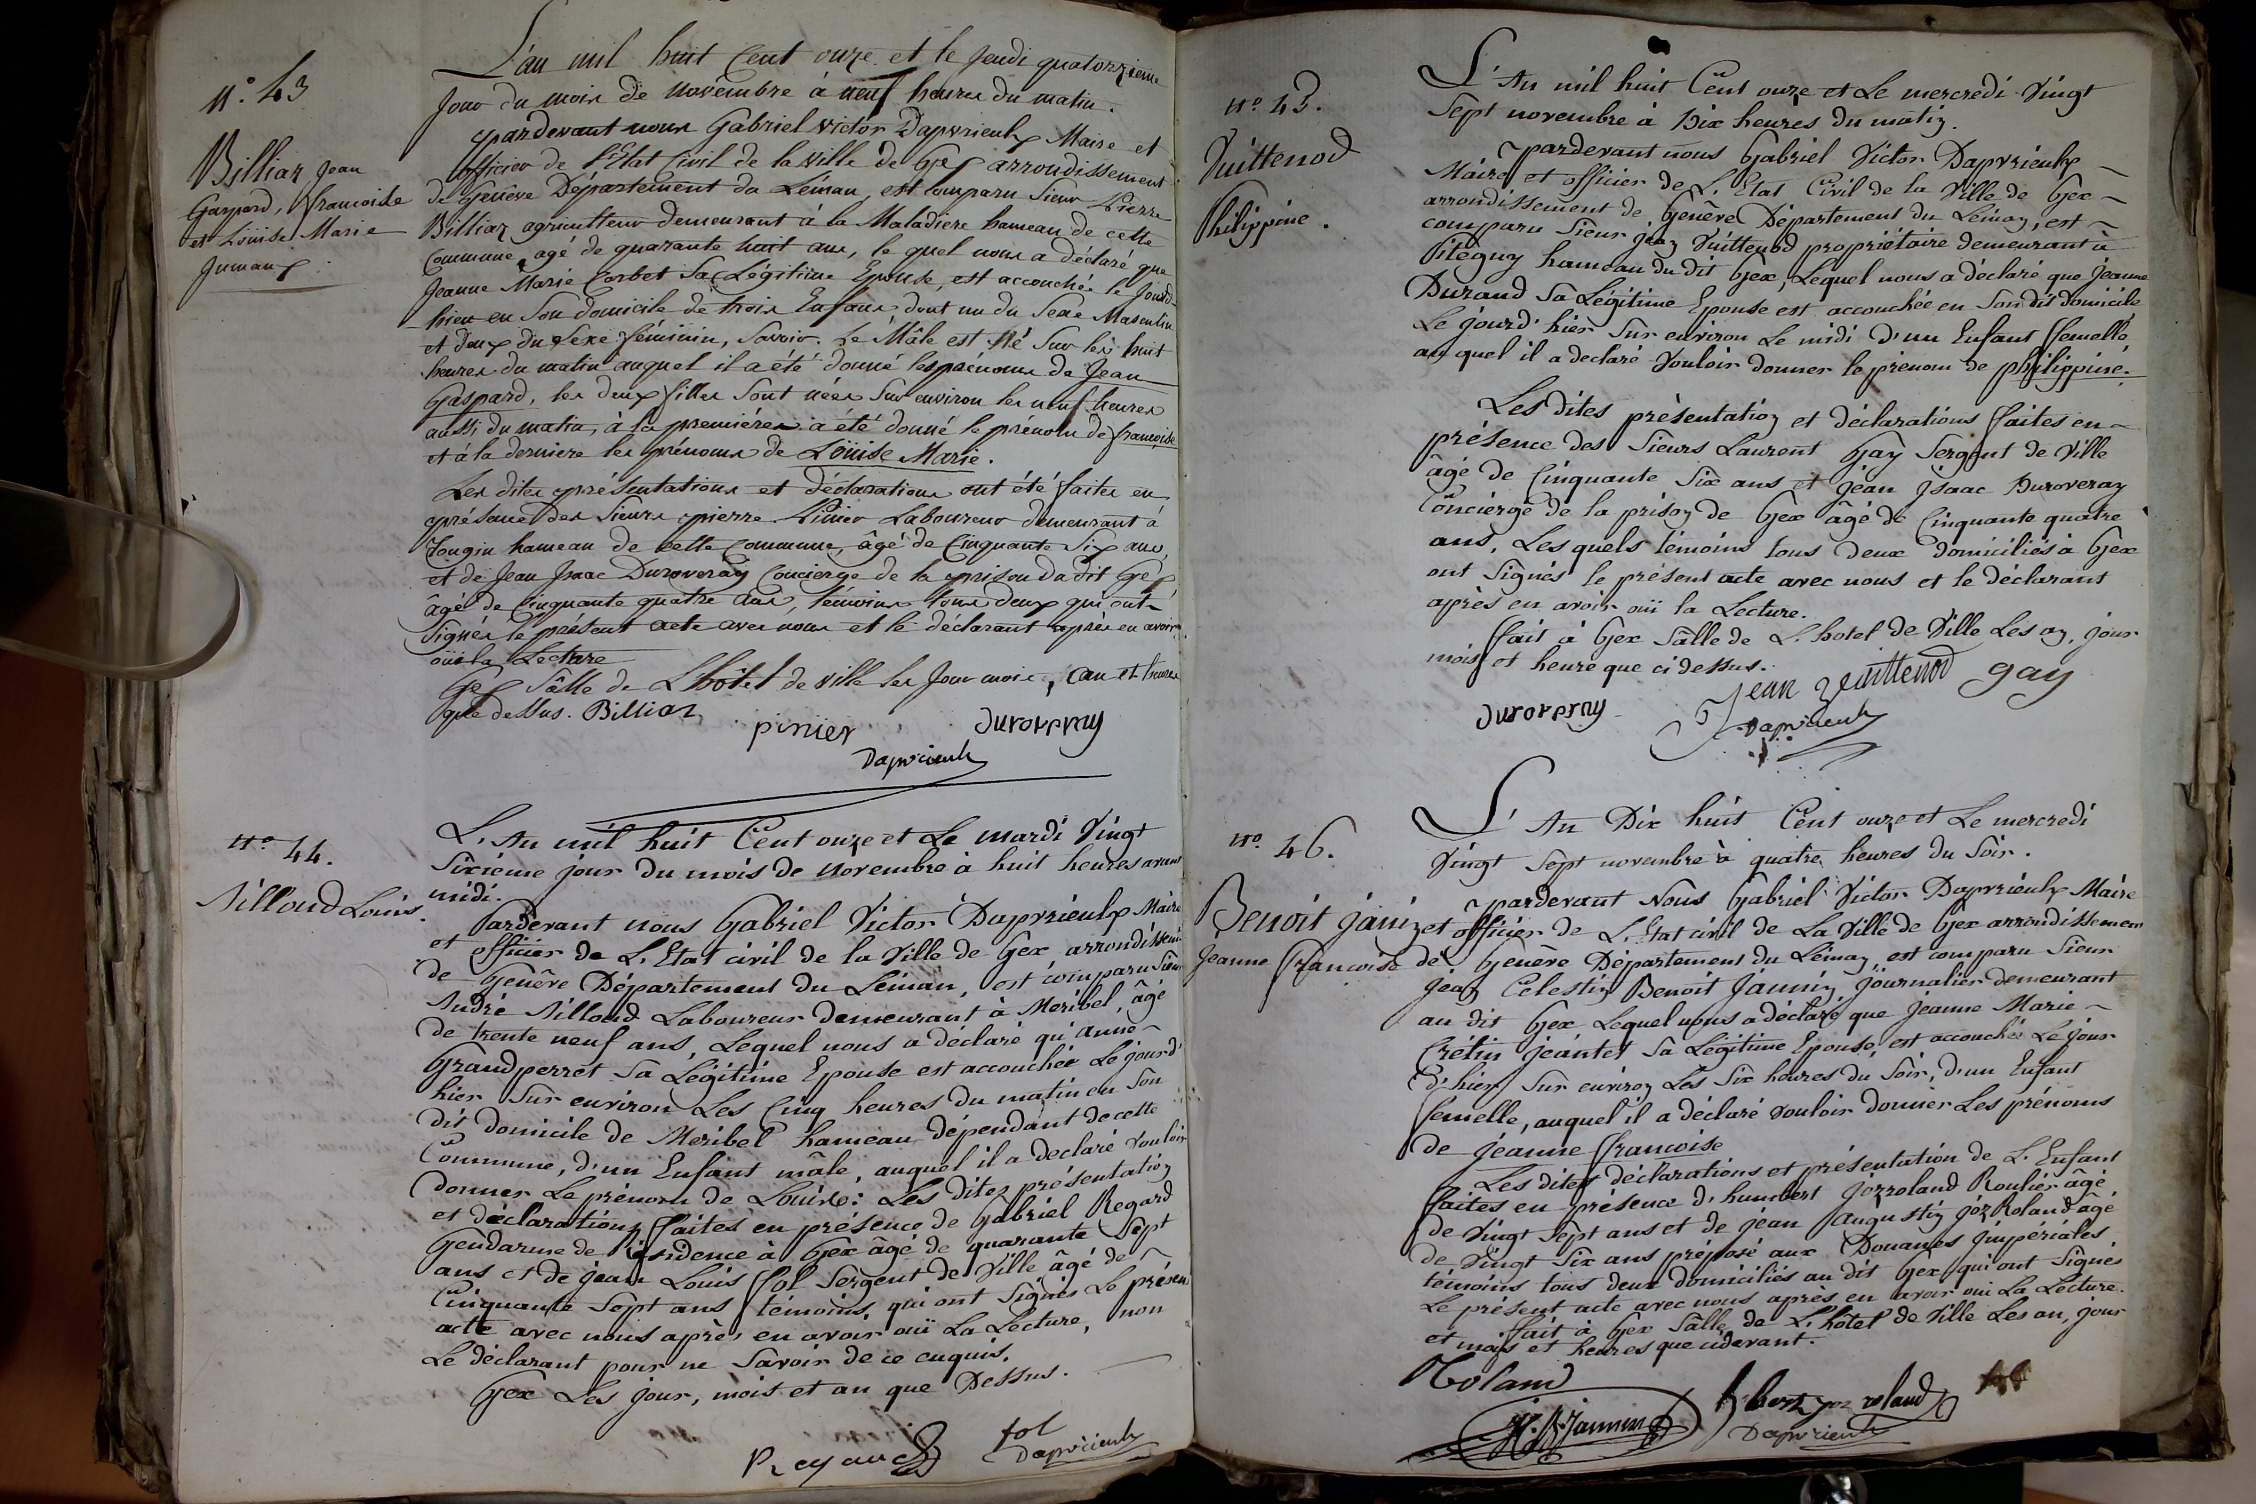 n.° 43
Billiaz Jean
Gaspard, francoise
et Loüise Marie
Jumeaux
L'an mil huit Cent onze et le Jeudi quatorzieme
Jour du mois de Novembre à neuf heures du matin.
pardevant nous Gabriel Victor Dapvrieulx Maire et
officier de l'Etat Civil de la ville de Gex arrondissement
de Genêve Département du Léman, est Comparu Sieur Pierre
Billiaz agriculteur demeurant à la Maladiere hameau de cette
Commune agé de quarante huit ans, le quel nous a déclaré que
Jeanne Marie Corbet Sa Légitime Epouse, est accouchée le Jourd-
hier en Son domicile de trois Enfans dont un du Sexe Masculin
et deux du Sexe féminin, Savoir. Le Mâle est Né Sur les huit
heures du matin auquel il a été donné les prénoms de Jean
Gaspard, les deux filles Sont nées Sur environ les neuf heures
aussi du matin, à la premiére a été donné le prénom de francoise
et à la derniere les prénoms de Loüise Marie.
Les dites présentations et déclarations ont été faites en
présence des Sieurs pierre Pinier Laboureur demeurant à
Tougin hameau de cette Commune, âgé de Cinquante Six ans,
et de Jean Isaac Duroveray Concierge de la prison du dit Gex
âgé de Cinquante quatre ans, témoins tous deux qui ont
Signés le présent acte avec nous et le déclarant après en avoir
oüi la Lecture
Gex Sâlle de L'hôtel de ville les Jour mois, an et heures
que dessus. Billiaz
pinier Duroveray
Dapvrieulx
n.° 44.
Nilloud Louis.
L'An mil huit Cent onze et Le mardi Vingt
Sixieme jour du mois de Novembre à huit heures avant
midi.
Pardevant nous Gabriel Victor Dapvrieulx Maire
et officier de L'Etat civil de la Ville de Gex, arrondissemt
de Genêve Département du Léman, est comparu Sieur
André Nilloud Laboureur demeurant à Meribel, âgé
de trente neuf ans, Lequel nous a déclaré qu'anne
Grandperret Sa Légitime Epouse est accouchée Le jourd'
hier Sur environ Les Cinq heures du matin en Son
dit domicile de Meribel hameau dépendant de cette
Commune, d'un Enfant mâle, auquel il a declaré Vouloir
donner Le prénom de Louis: Les dites présentation
et déclarations faites en présence de Gabriel Regard
Gendarme de Résidence à Gex âgé de quarante Sept
ans et de jean Louis fol Sergent de Ville âgé de
Cinquante Sept ans témoins, qui ont Signés Le présent
acte avec nous après en avoir oüi La Lecture, non
Le déclarant pour ne Savoir de ce enquis.
Gex Les jour, mois et an que Dessus.
Regard fol
Dapvrieulx
n.° 45.
Vuittenod
Philippine.
L'An mil huit Cent onze et Le mercredi Vingt
Sept novembre à Dix heures du matin.
pardevant nous Gabriel Victor Dapvrieulx
Maire et officier de L'Etat Civil de la Ville de Gex
arrondissement de Genêve Département du Léman, est
comparu Sieur jean Vuittenod propriétaire demeurant à
Pitegny hameau du dit Gex, Lequel nous a déclaré que jeanne
Durand Sa Légitime Epouse est accouchée en Son dit domicile
Le jourd'hier Sur environ Le midi d'un Enfant femelle,
au quel il a declaré Vouloir donner le prénom de philippine.
Les dites présentation et déclarations faites en
présence des Sieurs Laurent Gay Sergent de Ville
âgé de Cinquante Six ans et jean jsaac Duroveray
Concierge de la prison de Gex âgé de Cinquante quatre
ans, Les quels témoins tous deux domiciliés à Gex
ont Signés le présent acte avec nous et le déclarant
après en avoir oüi la Lecture.
fait à Gex Sâlle de L'hotel de Ville Les an, jour
mois et heure que ci dessus.
Jean Vuittenod gay
Duroveray
Dapvrieulx
n.° 46.
Benoit janin
Jeanne francoise
L'An Dix huit Cent onze et Le mercredi
Vingt Sept novembre à quatre heures du Soir.
pardevant Nous Gabriel Victor Dapvrieulx Maire
et officier de L'Etat civil de La Ville de Gex arrondissement
de Genêve Département du Léman, est comparu Sieur
jean Celestin Benoit Jannin journalier demeurant
au dit Gex Lequel nous a déclaré que jeanne Marie
Cretin jeantet Sa Légitime Epouse, est accouchée Le jour
d'hier Sur environ Les Six heures du Soir, d'un Enfant
femelle, auquel il a déclaré vouloir donner Les prénoms
de jeanne francoise
Les dites déclarations et présentation de L'Enfant
faites en présence d'humbert jozroland Roulier âgé
de Vingt Sept ans et de jean augustin jozRoland âgé
de Vingt Six ans préposé aux Douanes jmpériales
témoins tous deux domiciliés au dit Gex qui ont Signés
Le présent acte avec nous apres en avoir oui La Lecture.
fait à Gex Sâlle de L'hôtel de Ville Les an, jour
et mois et heures que cidevant.
Roland
Jannin
joz roland
Dapvrieulx